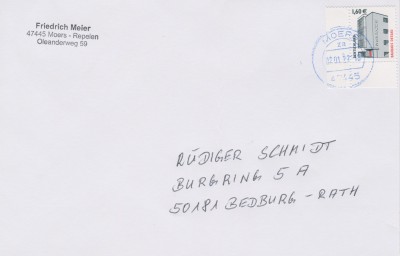 Friedrich Meier
47445 Moers - Repelen
Oleanderweg 59
1,60 €
MOERS
RÜDIGER SCHMIDT
BURGRING 5 A
50181 BEDBURG - RATH